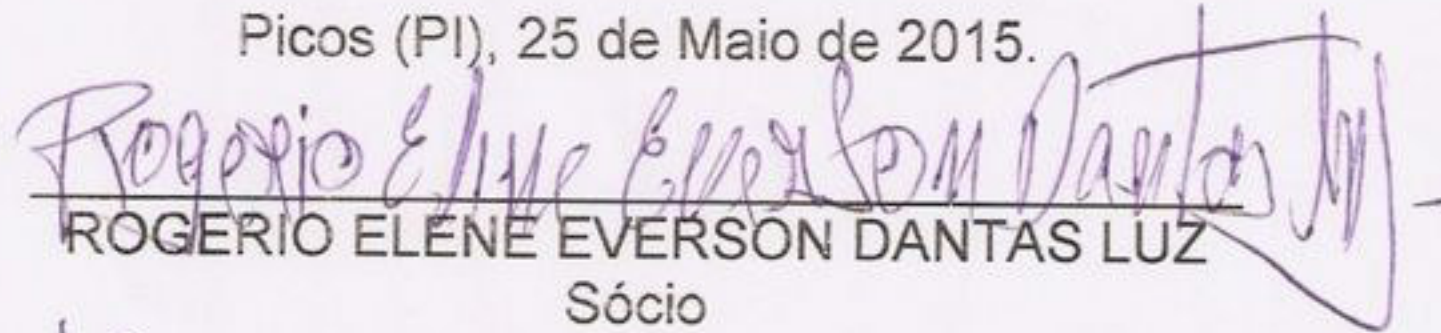 Picos (PI), 25 de Maio de 2015.
Rogerio Elene Everson Dantas Luz
ROGERIO ELENE EVERSON DANTAS LUZ
Sócio